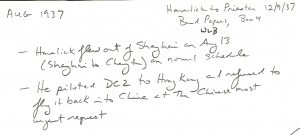 AUG 1937
Harelick to Priester 12/9/37
Bond Papers, Box 4
WLB
- Harelick flew out of Shanghai on Aug 13
(Shanghai to Chengtu) on normal schedule
- He piloted DC2 to Hong Kong and refused to
fly it back into China at the Chinese most
urgent request